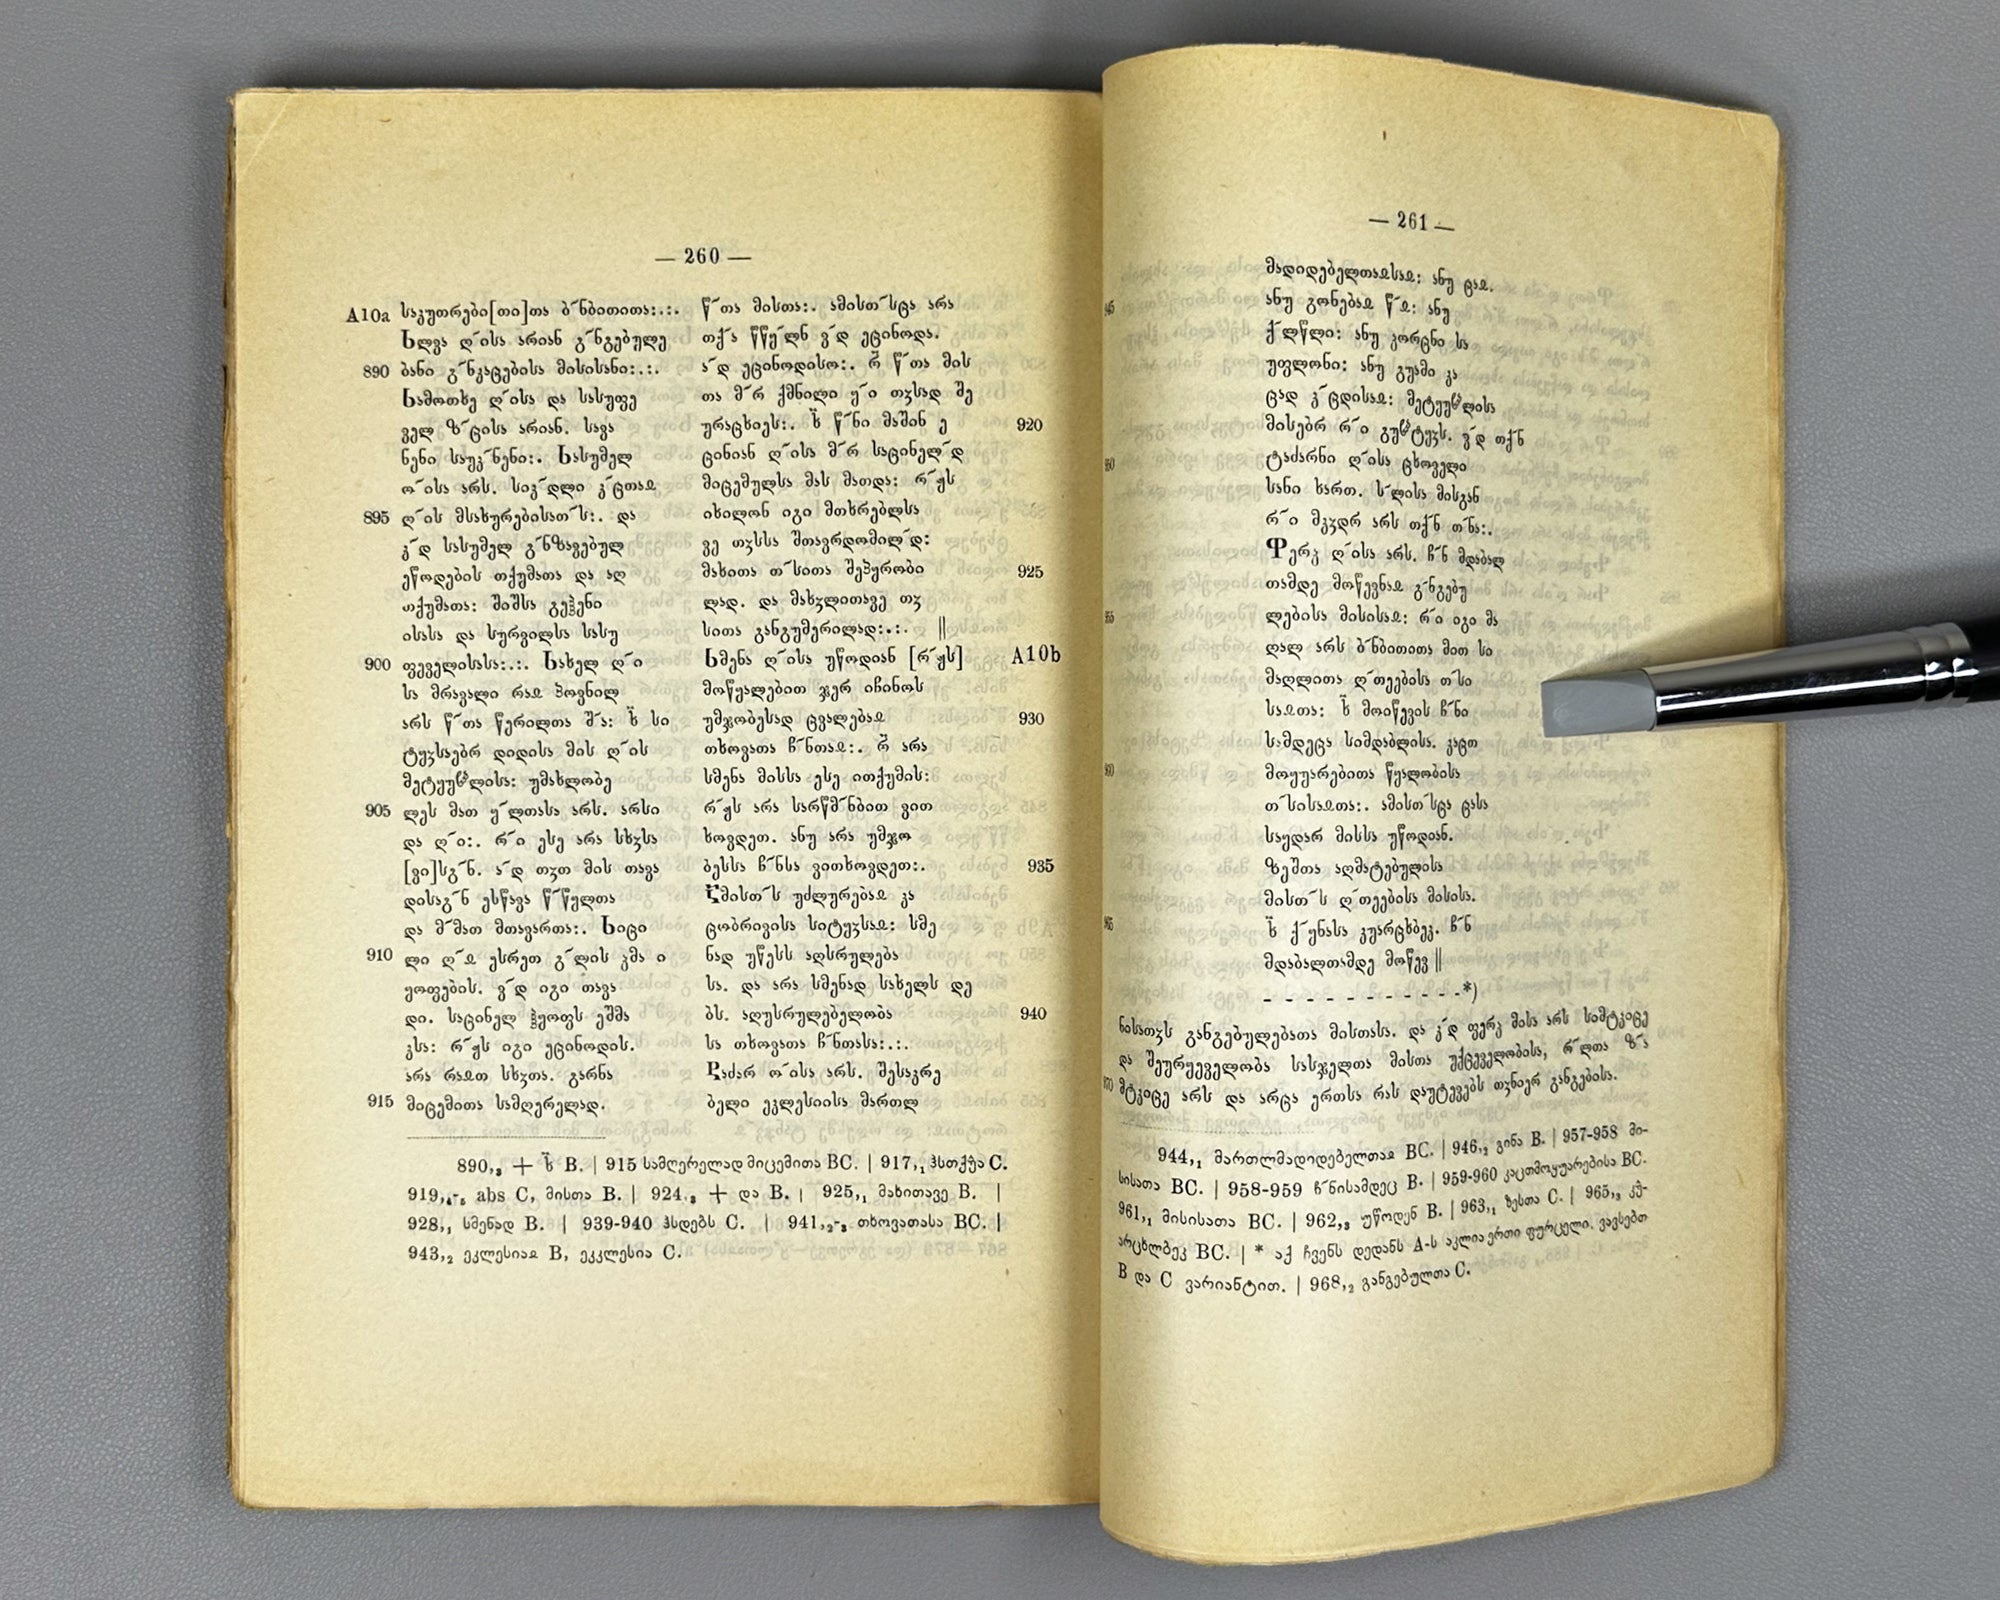 — 260 —
A10a საკუთრები[თი]თა ბ˜ნბითითა:.:.
ხლვა ღ˜ისა არიან გ˜ნგებულე
890 ბანი გ˜ნკაცებისა მისისანი:.:.
სამოთხე ღ˜ისა და სასუფე
ველ ზ˜ცისა არიან. სავა
ნენი საუკ˜ნენი:. სასუმელ
ო˜ისა არს. სიკ˜დლი კ˜ცთაჲ
895 ღ˜ის მსახურებისათ˜ს:. და
კ˜დ სასუმელ გ˜ნზავებულ
ეწოდების თქუმათა და აღ
თქუმათა: შიშსა გეჰენი
ისასა და სურვილსა სასუ
900 ფეველისასა:.:. სახელ ღ˜ი
სა მრავალი რაჲ პოვნილ
არს წ˜თა წერილთა შ˜ა: ხ̃ სი
ტყჳსაებრ დიდისა მის ღ˜ის
მეტყუჱლისა: უმახლობე
905 ლეს მათ ყ˜ლთასა არს. არსი
და ღ˜ი:. რ˜ი ესე არა სხჳსა
[ვი]სგ˜ნ. ა˜დ თჳთ მის თავა
დისაგ˜ნ ესწავა წ˜წელთა
და მ˜მათ მთავართა:. სიცი
910 ლი ღ˜ჲ ესრეთ გ˜ლის კმა ი
ყოფების. ვ˜დ იგი თავა
დი. საცინელ ჰყოფს ეშმა
კსა: რ˜ჟს იგი ეცინოდის.
არა რაჲთ სხჳთა. გარნა
915 მიცემითა სამღერელად.
წ˜თა მისთა:. ამისთ˜სცა არა
თქ˜ა წწყ˜ლნ ვ˜დ ეცინოდა.
ა˜დ ეცინოდისო:. რ̃ წ˜თა მის
თა მ˜რ ქმნილი ყ˜ი თჳსად შე
ურაცხიეს:. ხ̃ წ˜ნი მაშინ ე 920
ცინიან ღ˜ისა მ˜რ საცინელ˜დ
მიცემულსა მას მათდა: რ˜ჟს
იხილონ იგი მთხრებლსა
ვე თჳსსა შთავრდომილ˜დ:
მახითა თ˜სითა შეპყრობი 925
ლად. და მახჳლითავე თჳ
სითა განგუმერილად:.:. ||
სმენა ღ˜ისა უწოდიან [რ˜ჟს] A10b
მოწყალებით ჯერ იჩინოს
უმჯობესად ცვალებაჲ 930
თხოვათა ჩ˜ნთაჲ:. რ̃ არა
სმენა მისსა ესე ითქუმის:
რ˜ჟს არა სარწმ˜ნბით ვით
ხოვდეთ. ანუ არა უმჯო
ბესსა ჩ˜ნსა ვითხოვდეთ:. 935
ამისთ˜ს უძლურებაჲ კა
ცობრივისა სიტყჳსაჲ: სმე
ნად უწესს აღსრულება
სა. და არა სმენად სახელს დე
ბს. აღუსრულებელობა 940
სა თხოვათა ჩ˜ნთასა:.:.
ტაძარ ო˜ისა არს. შესაკრე
ბელი ეკლესიისა მართლ
890,₃ + ხ̃ B. | 915 სამღერელად მიცემითა BC. | 917,₁ ჰსთქჳა C.
919,₄-₅ abs C, მისთა B. | 924,₃ + და B. | 925,₁ მახითავე B. |
928,₁ სმენად B. | 939-940 ჰსდებს C. | 941,₂-₃ თხოვათასა BC. |
943,₂ ეკლესიაჲ B, ეკკლესია C.
— 261 —
მადიდებელთაჲსაჲ: ანუ ცაჲ.
945 ანუ გონებაჲ წ˜ჲ: ანუ
ქ˜ლწლი: ანუ კორცნი სა
უფლონი: ანუ გუამი კა
ცად კ˜ცდისაჲ: მეტყუჱლისა
მისებრ რ˜ი გუჱტყჳს. ვ˜დ თქ˜ნ
950 ტაძარნი ღ˜ისა ცხოველი
სანი ხართ. ს˜ლისა მისგან
რ˜ი მკჳდრ არს თქ˜ნ თ˜ნა:.
ფერკ ღ˜ისა არს. ჩ˜ნ მდაბალ
თამდე მოწევნაჲ გ˜ნგებუ
955 ლებისა მისისაჲ: რ˜ი იგი მა
ღალ არს ბ˜ნბითითა მით სი
მაღლითა ღ˜თეებისა თ˜სი
საჲთა: ხ̃ მოიწევის ჩ˜ნი
სამდეცა სიმდაბლისა. კაცთ
960 მოყუარებითა წყალობისა
თ˜სისაჲთა:. ამისთ˜სცა ცასა
საყდარ მისსა უწოდიან.
ზეშთა აღმატებულისა
მისთ˜ს ღ˜თეებისა მისისა.
965 ხ̃ ქ˜ყნასა კუარცხბეკ. ჩ˜ნ
მდაბალთამდე მოწევ ||
– – – – – – – – – – –*)
ნისათჳს განგებულებათა მისთასა. და კ˜დ ფერკ მისა არს სიმტკიცე
და შეურყეველობა სასჯელთა მისთა უქცეველობისა, რ˜ლთა ზ˜ა
970 მტკიცე არს და არცა ერთსა რას დაუტევებს თჳნიერ განგებისა.
944,₁ მართლმადიდებელთაჲ BC. | 946,₂ გინა B. | 957-958 მი-
სისათა BC. | 958-959 ჩ˜ნისამდეც B. | 959-960 კაცთმოყუარებისა BC.
961,₁ მისისათა BC. | 962,₃ უწოდენ B. | 963,₁ ზესთა C. | 965,₃ კჳ-
არცხლბეკ BC. | * აქ ჩვენს დედანს A-ს აკლია ერთი ფურცელი. ვავსებთ
B და C ვარიანტით. | 968,₂ განგებულთა C.